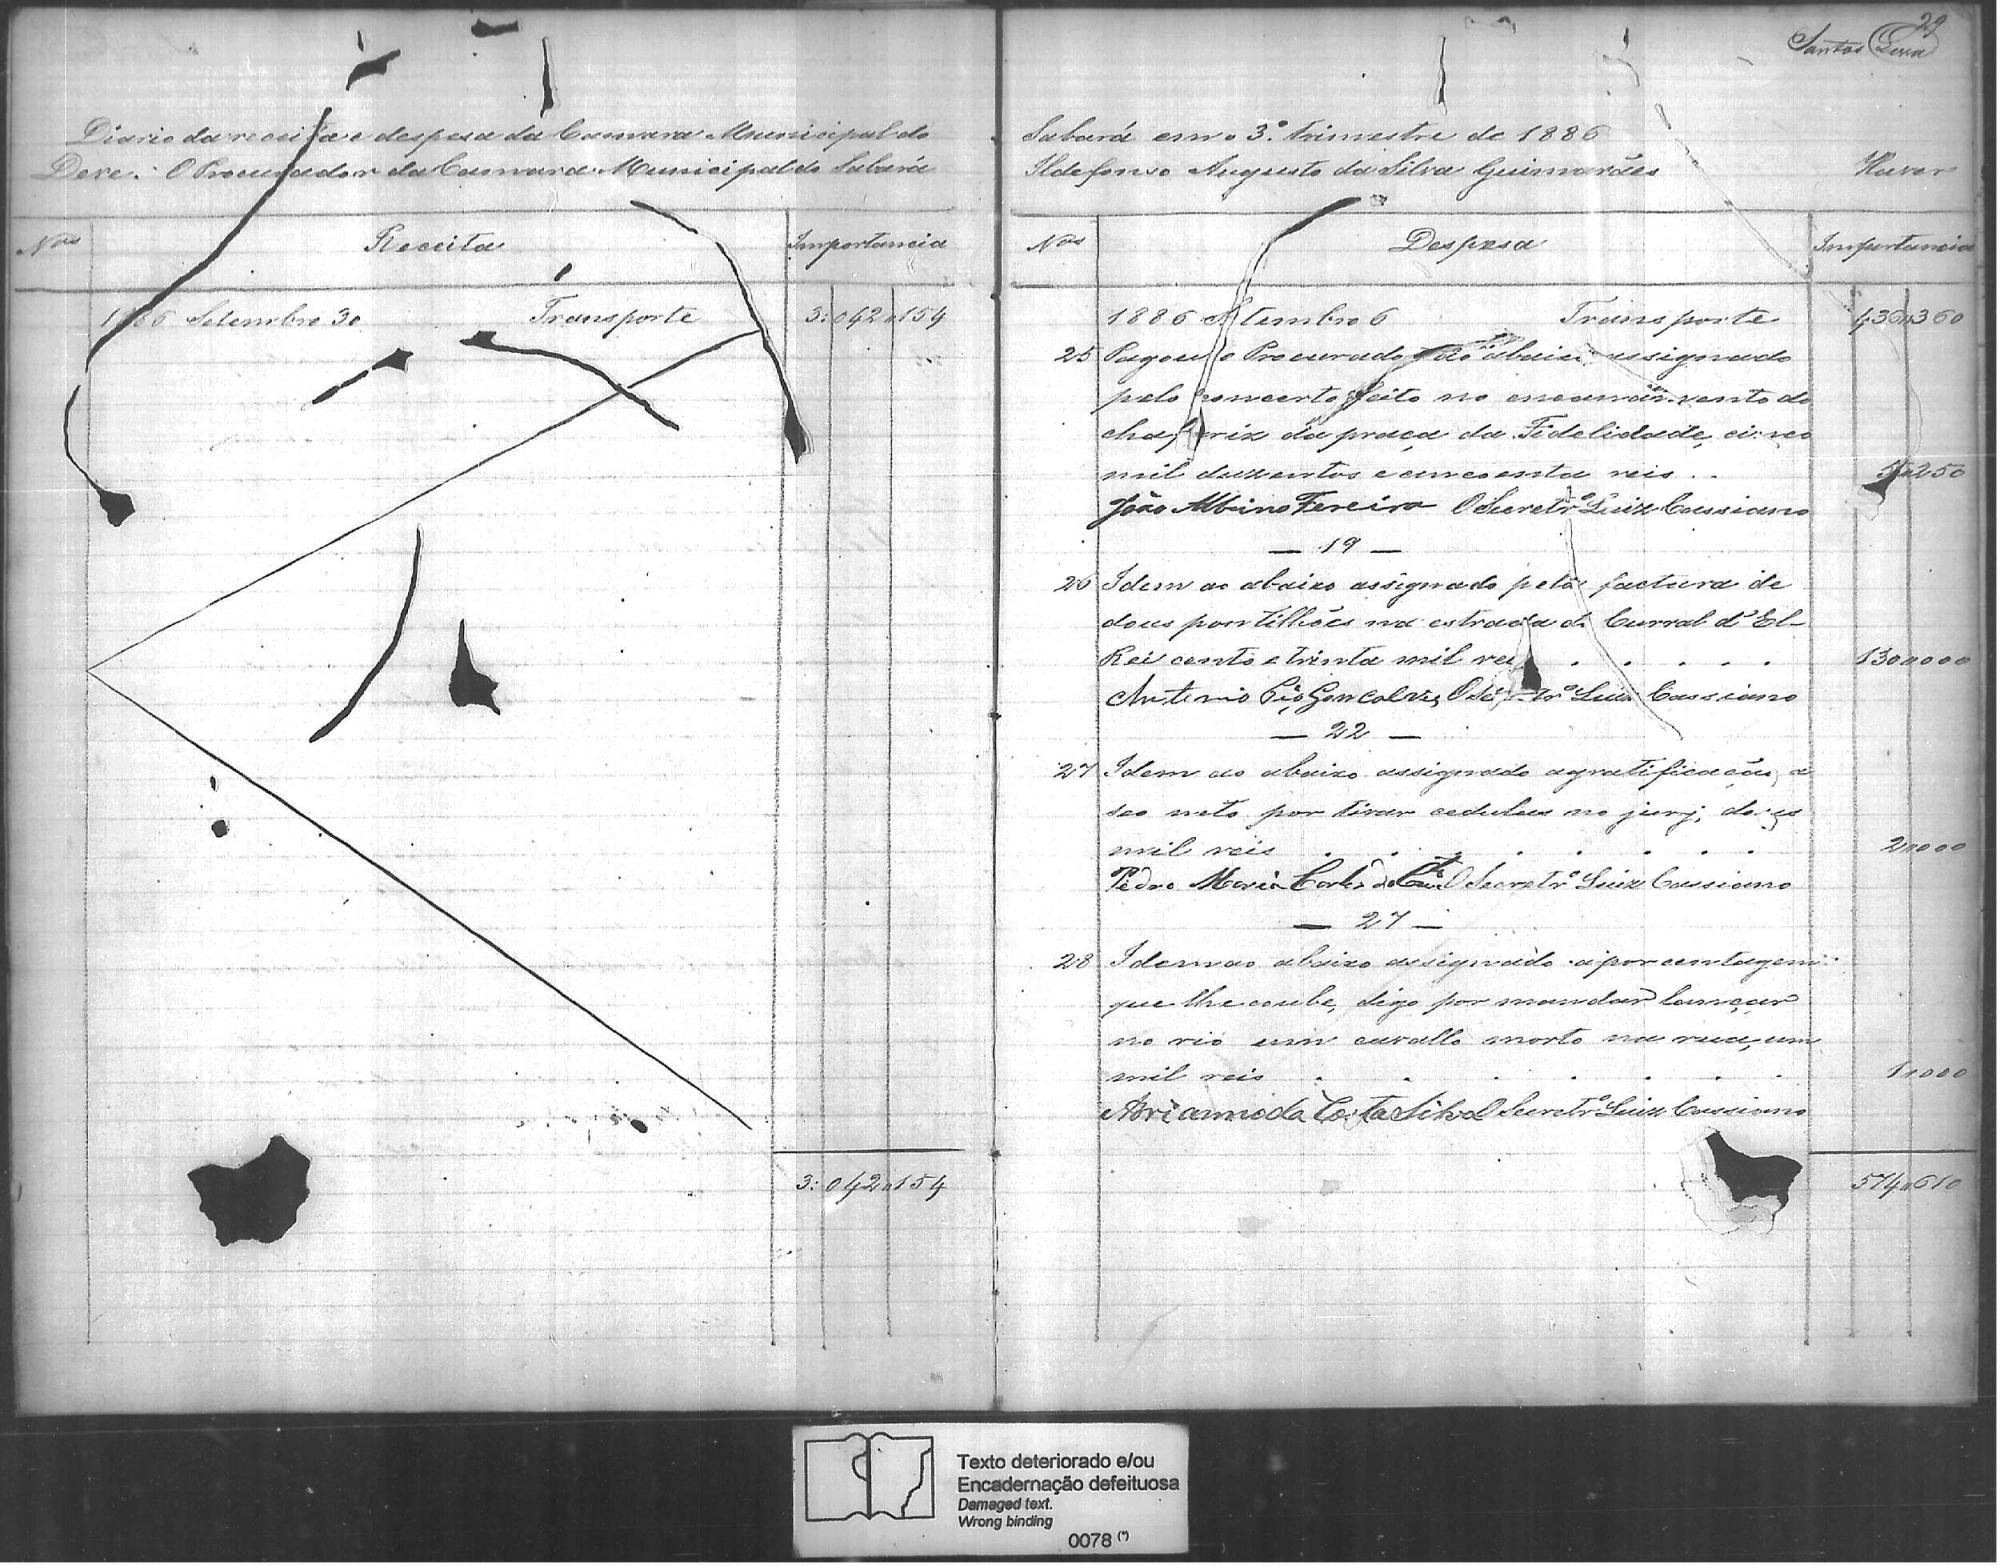 Diario da receita e despesa da Camara Municipal do
Deve. O Procurador da Camara Municipal do Sabará
Nos Receita Importancia
1886 Setembro 30 Transporte 3:042"154
3:042"154
29
Santos
Sabará em o 3º. trimestre de 1886
Ildefonso Augusto da Silva Guimarães Haver
Nos Despesa Importancia
1886 Setembro 6 Transporte 436"360
25 Pagou o Procurador ao abaixo assignado
pelo concerto feito no encanamento do
chafariz da praça da Fidelidade, cinco
mil duzentos e cincoenta reis . . 5"250
João Albino Fereira O Secretrº Luiz Cassiano
— 19 —
26 Idem ao abaixo assignado pela factura de
dous pontilhões na estrada do Curral d'El-
Rei cento e trinta mil reis . . . . . 130"000
Antonio Pio Gonçalves O Secretrº Luiz Cassiano
— 22 —
27 Idem ao abaixo assignado a gratificação, a
seo neto por tirar cedulas no jury, dous
mil reis . . . . . . . 2"000
Pedro Maria O Secretrº Luiz Cassiano
— 27 —
28 Idem ao abaixo assignado a porcentagem
que lhe coube, digo por mandar lançar
no rio um cavallo morto na rua, um
mil reis . . . . . . . 1"000
da Costa Silva O Secretrº Luiz Cassiano
574"610
Texto deteriorado e/ou
Encadernação defeituosa
Damaged text.
Wrong binding
0078 (*)